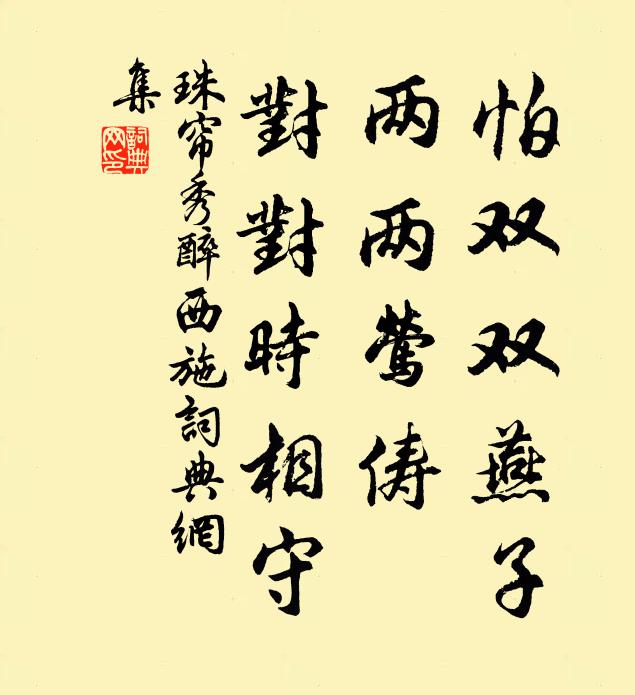 怕双双燕子
两两莺俦
對對時相守
珠帘秀醉西施詞典網
集
詞典
网印